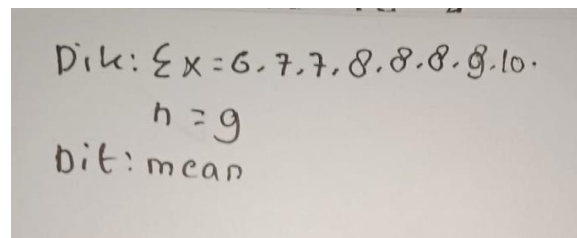 Dik: Σx = 6.7.7.8.8.8.9.10.
n = 9
Dit: mean